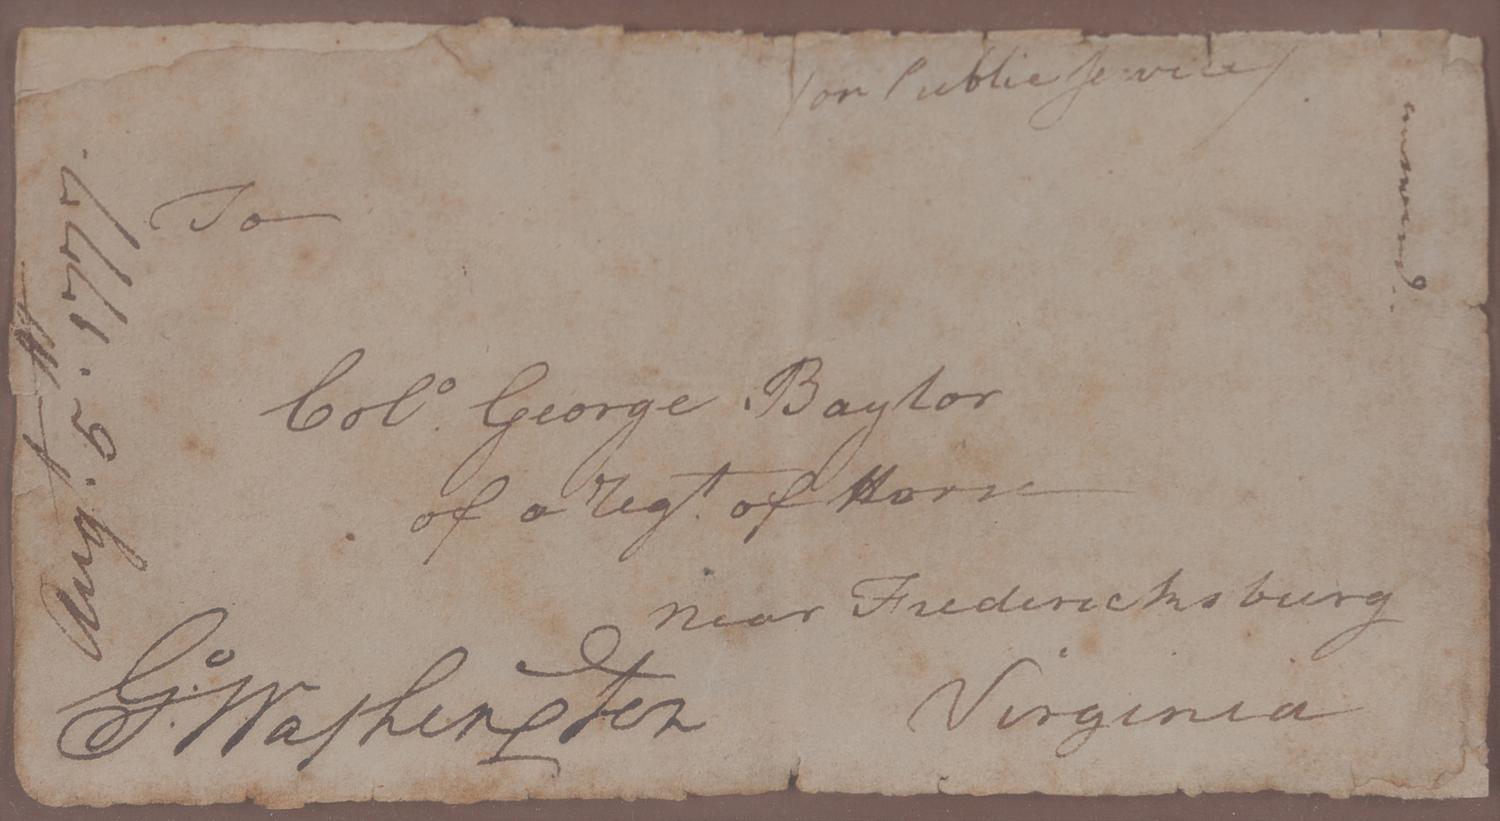 (on Public Service)
To
Colº. George Baylor
of a Regt. of Horse
near Fredericksburg
Virginia
Gº. Washington
Aug. 5. 1777.
answered.